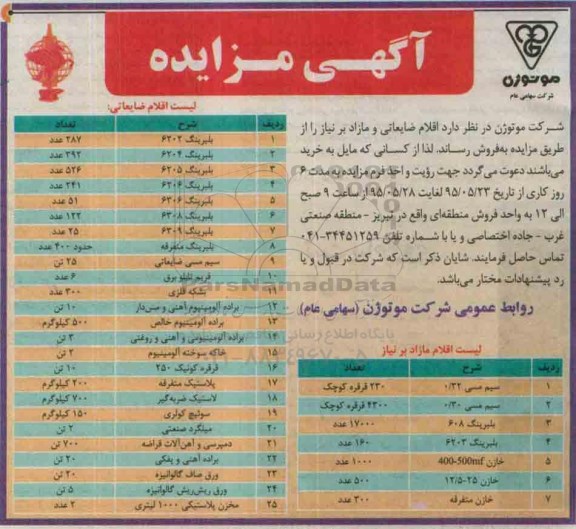 آگهی مزایده
موتوژن
شرکت سهامی عام
شرکت موتوژن در نظر دارد اقلام ضایعاتی و مازاد بر نیاز را از
طریق مزایده به‌فروش رساند. لذا از کسانی که مایل به خرید
می‌باشند دعوت می گردد جهت رؤیت و اخذ فرم مزایده به‌مدت ۶
روز کاری از تاریخ ۹۵/۰۵/۲۳ لغایت ۹۵/۰۵/۲۸ از ساعت ۹ صبح
الی ۱۲ به واحد فروش منطقه‌ای واقع در تبریز - منطقه صنعتی
غرب - جاده اختصاصی و یا با شماره تلفن ۳۴۴۵۱۲۵۹-۰۴۱
تماس حاصل فرمایند. شایان ذکر است که شرکت در قبول و یا
رد پیشنهادات مختار می‌باشد.
روابط عمومی شرکت موتوژن (سهامی عام)
لیست اقلام مازاد بر نیاز
ردیف شرح تعداد
۱ سیم مسی ۰/۳۲ ۲۳۰ قرقره کوچک
۲ سیم مسی ۰/۳۰ ۴۳۰۰ قرقره کوچک
۳ بلبرینگ ۶۰۸ ۱۷۰۰۰ عدد
۴ بلبرینگ ۶۲۰۳ ۱۶۰ عدد
۵ خازن 400-500mf ۱۰۰۰ عدد
۶ خازن ۲۵-۱۲/۵ ۵۰۰ عدد
۷ خازن متفرقه ۳۰۰ عدد
لیست اقلام ضایعاتی:
ردیف شرح تعداد
۱ بلبرینگ ۶۲۰۲ ۲۸۷ عدد
۲ بلبرینگ ۶۲۰۴ ۳۹۲ عدد
۳ بلبرینگ ۶۲۰۵ ۵۲۶ عدد
۴ بلبرینگ ۶۲۰۶ ۲۴۱ عدد
۵ بلبرینگ ۶۳۰۶ ۵۱ عدد
۶ بلبرینگ ۶۳۰۸ ۱۲۲ عدد
۷ بلبرینگ ۶۳۰۹ ۲۵ عدد
۸ بلبرینگ متفرقه حدود ۴۰۰ عدد
۹ سیم مسی ضایعاتی ۲۵ تن
۱۰ فریم تابلو برق ۶ عدد
۱۱ بشکه فلزی ۳۰۰ عدد
۱۲ براده آلومینیوم آهنی و مس‌دار ۱۰ تن
۱۳ براده آلومینیوم خالص ۵۰۰ کیلوگرم
۱۴ براده آلومینیومی و آهنی و روغنی ۳ تن
۱۵ خاکه سوخته آلومینیوم ۲ تن
۱۶ قرقره کونیک ۲۵۰ ۱۰ تن
۱۷ پلاستیک متفرقه ۴۰۰ کیلوگرم
۱۸ لاستیک ضربه‌گیر ۷۰۰ کیلوگرم
۱۹ سوئیچ کولری ۱۵۰ کیلوگرم
۲۰ میلگرد صنعتی ۲ تن
۲۱ دمپرسی و آهن‌آلات قراضه ۷۰۰ تن
۲۲ براده آهنی و پفکی ۲۰ تن
۲۳ ورق صاف گالوانیزه ۲۰ تن
۲۴ ورق ریش‌ریش گالوانیزه ۵ تن
۲۵ مخزن پلاستیکی ۱۰۰۰ لیتری ۲ عدد
ParsNamadData